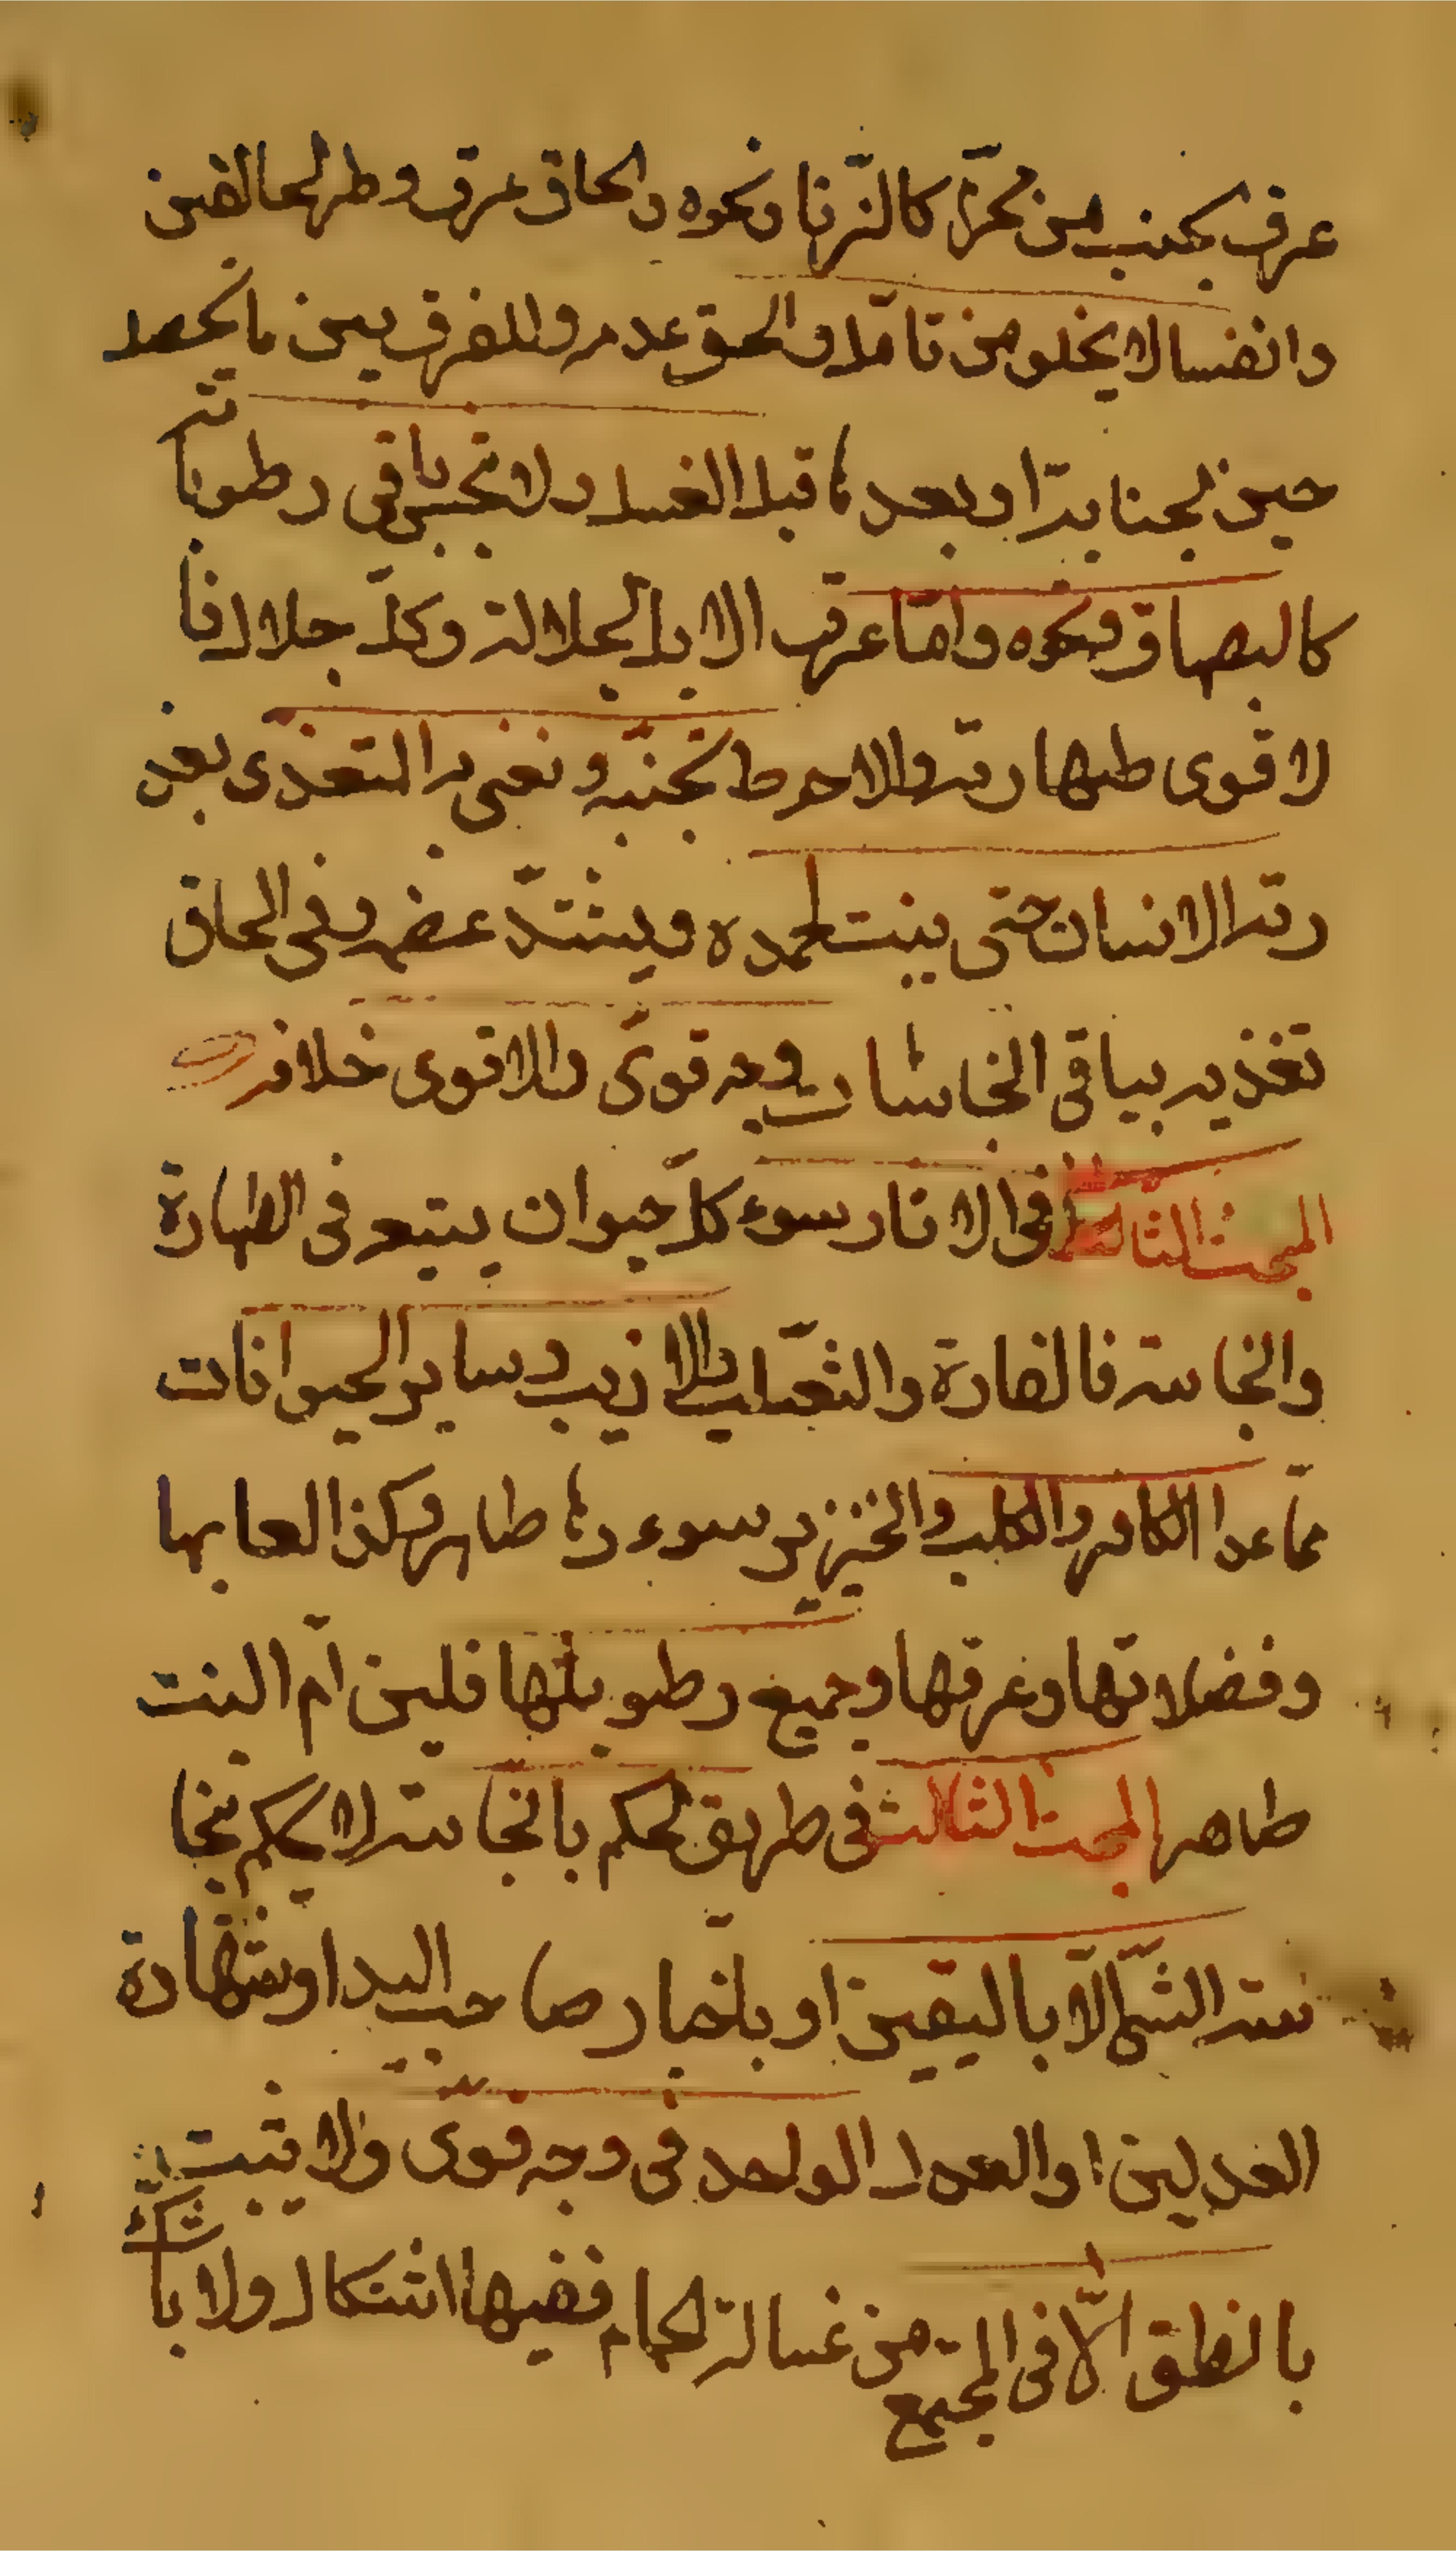 عرق الجنب من محرّم كالزّنا ونحوه والحاق عرق وطي الحائض
والنفساء لا يخلو من تامّل والحق عدمه ولا فرق بين ما يحصل
حين الجنابة او بعدها قبل الغسل ولا تنجس باقي رطوباته
كالبصاق ونحوه وامّا عرق الابل الجلالة وكلّ جلال فا
لاقوى طهارته والاحوط تجنّبه ونعني به المتغذى بعذ
رة الانسان حتى ينبت لحمه ويشتدّ عظمه وفي الحاق
تغذيه بباقي النجاسات وجه قوىّ والاقوى خلافه
المبحث الثاني في الاسار سوء كلّ حيوان يتبعه في الطهارة
والنجاسة فالفارة والثعلب والارنب وساير الحيوانات
ممّا عدا الكافر والكلب والخنزير سوءرها طاهر وكذا لعابها
وفضلاتها وعرقها وجميع رطوبتها فلبن امّ البنت
طاهر المبحث الثالث في طريق الحكم بالنجاسة لا يحكم بنجا
سة الشّي الّا باليقين او باخبار صاحب اليد او شهادة
العدلين او العدل الواحد في وجه قوى ولا يثبت
بالظن الّا في المجتمع من غسالة الحمام ففيها اشكال ولا بالشكّ